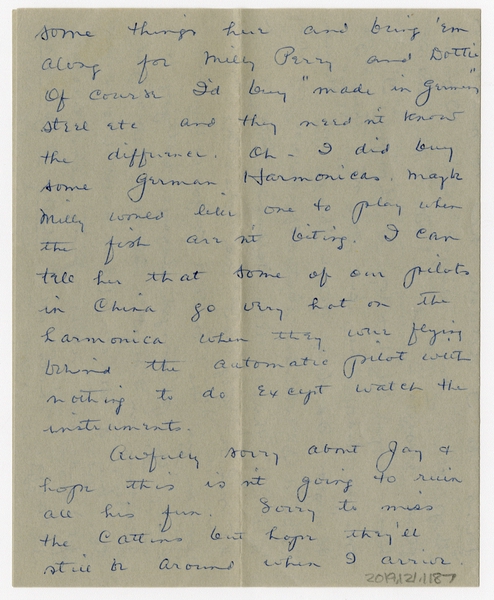 some things here and bring 'em
along for Milly Perry and Dottie
Of course I'd buy "made in Germany"
steel etc and they need n't know
the difference. Oh - I did buy
some German Harmonicas. Maybe
Milly would like one to play when
the fish are n't biting. I can
tell her that some of our pilots
in China go very hot on the
harmonica when they were flying
behind the automatic pilot with
nothing to do except watch the
instruments.
Awfully sorry about Jay &
hope this is n't going to ruin
all his fun. Sorry to miss
the Cattins but hope they'll
still be around when I arrive.
2019.121.1187